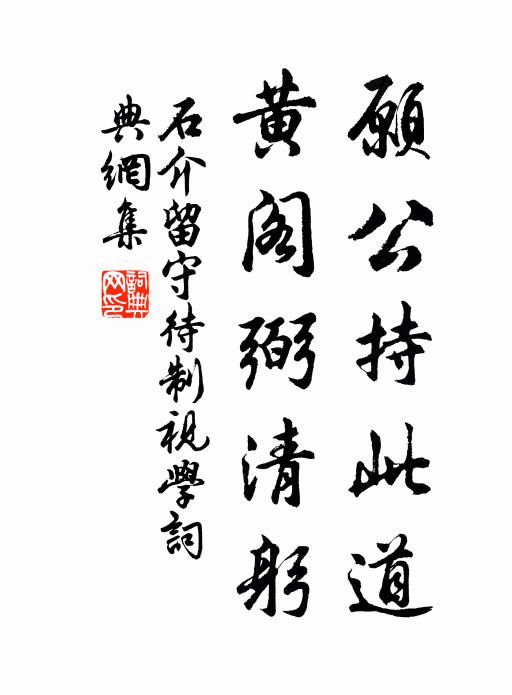 願公持此道
黄阁弼清躬
石介留守待制視學詞
典網集
詞典網印